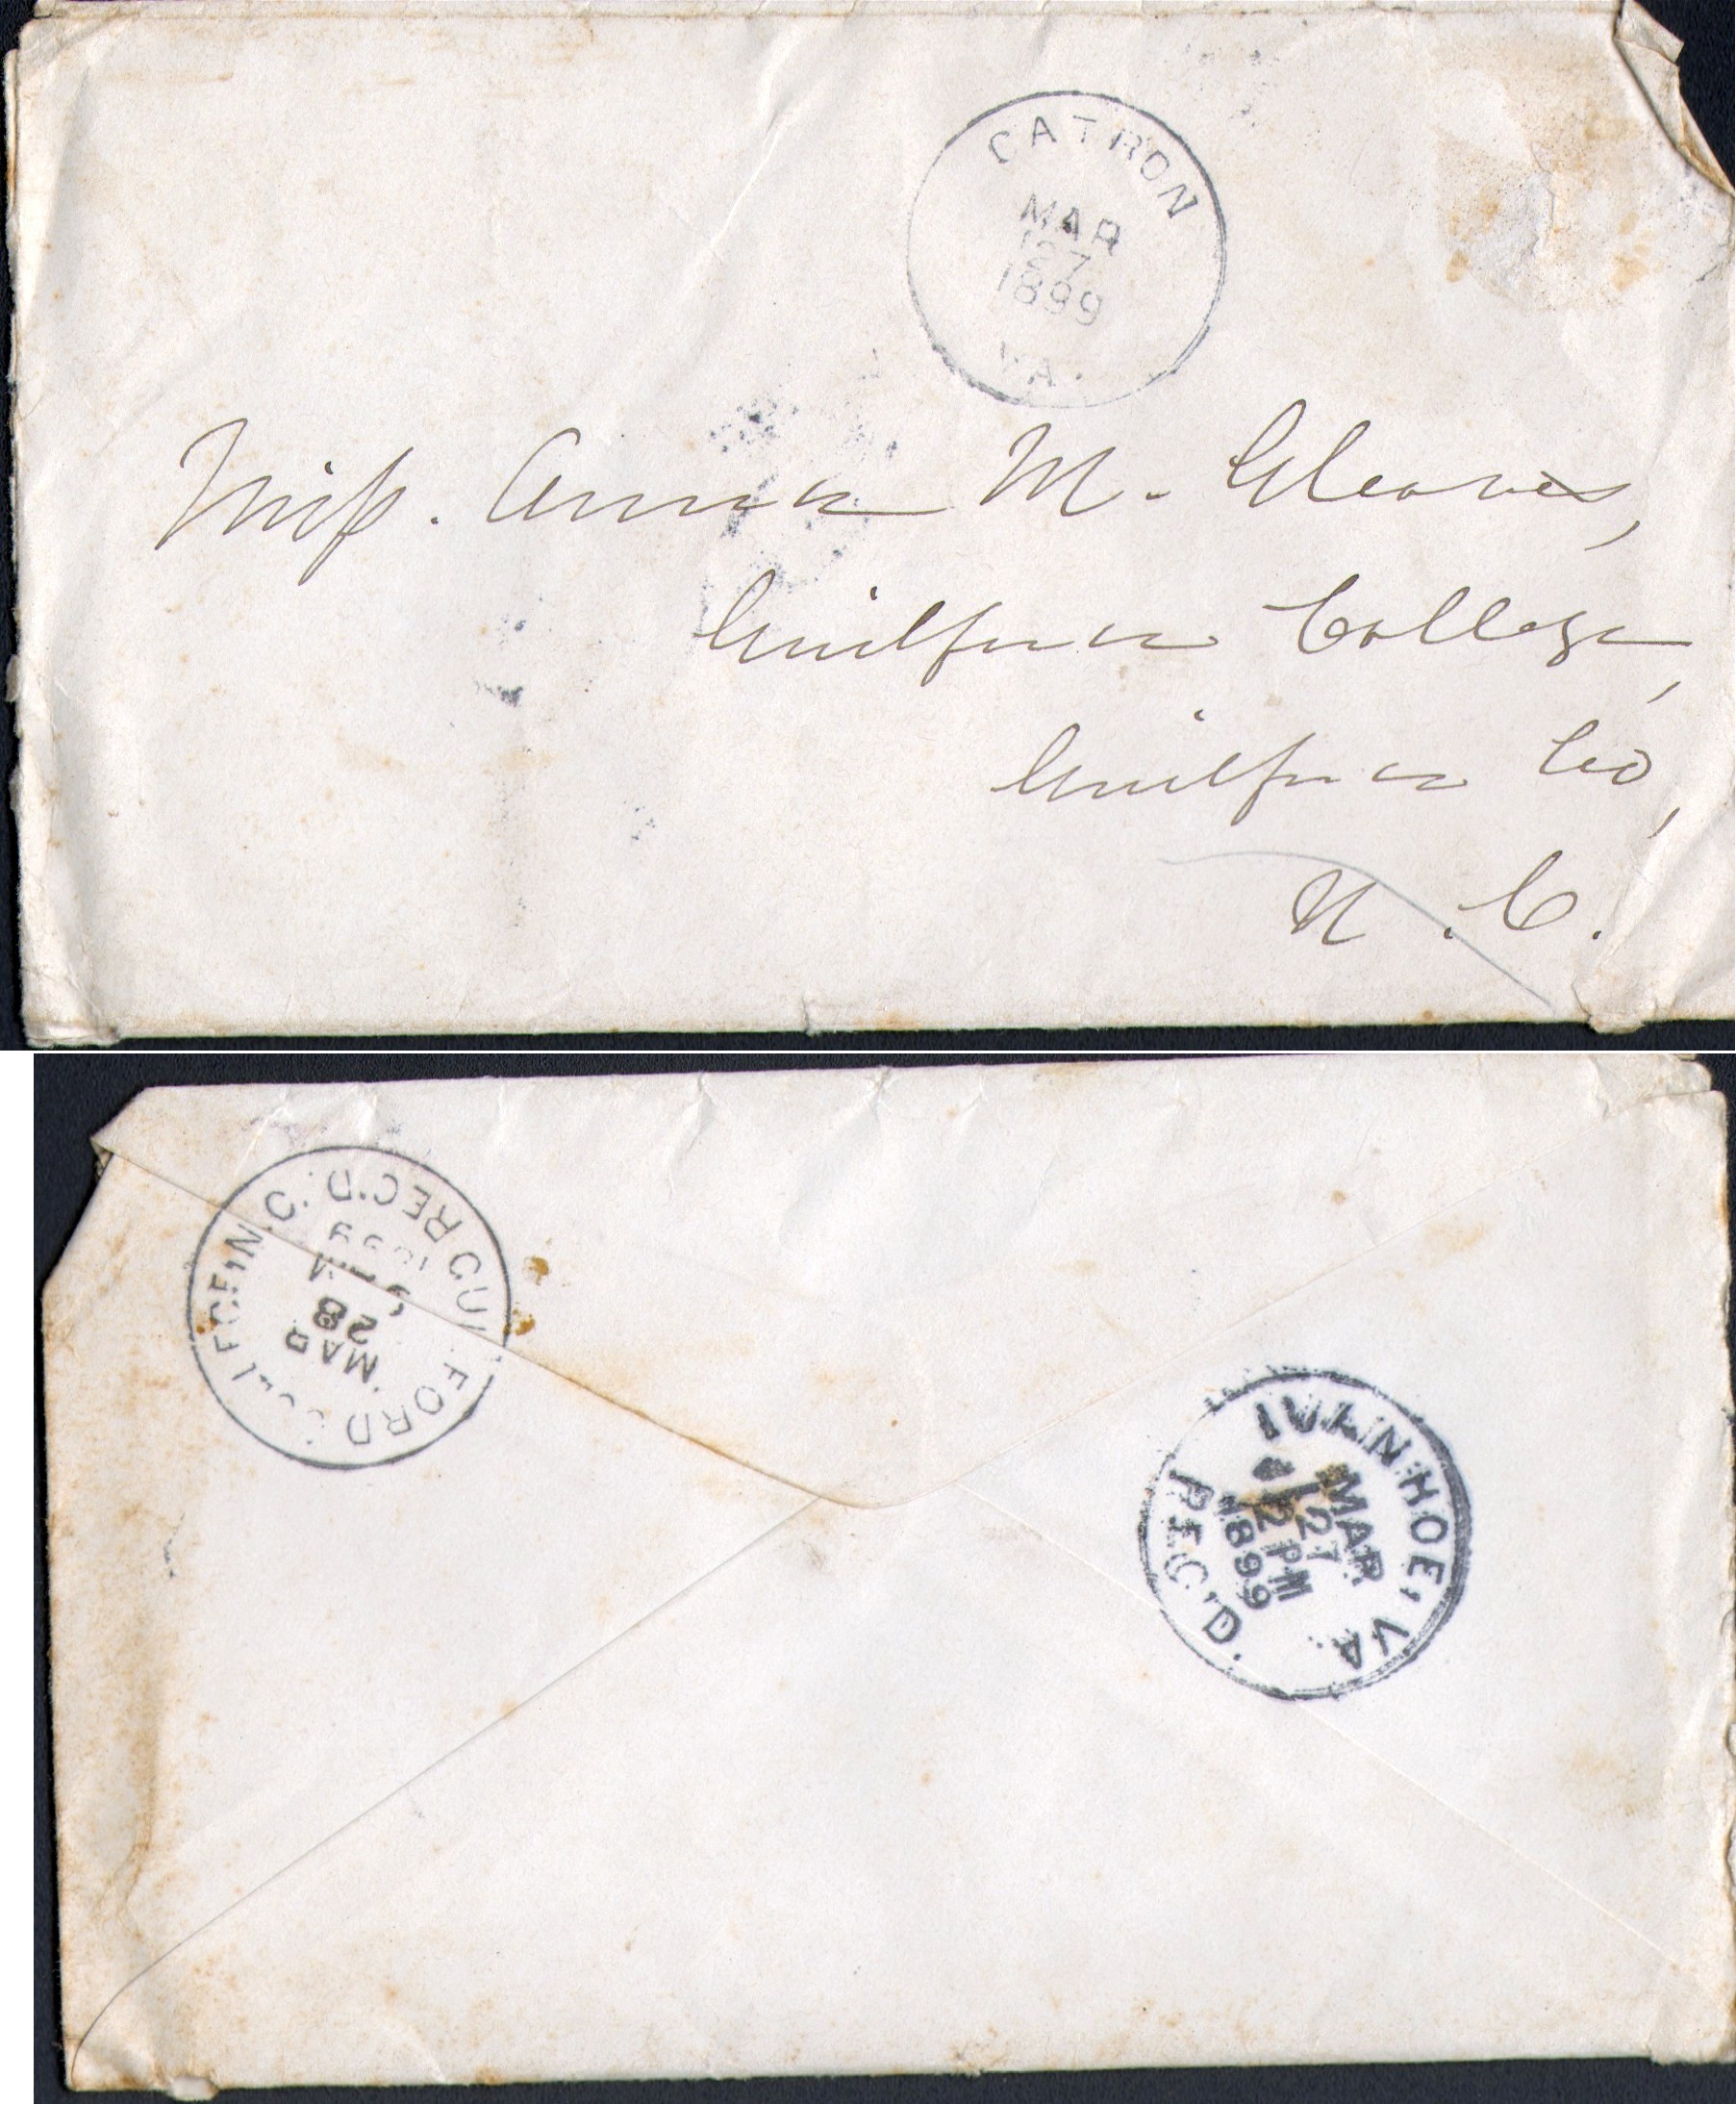 CATRON
MAR
27
1899
VA.
Miss. Anna M. Gleaves,
Guilford College,
Guilford Co,
N. C.
GUILFORD COLLEGE, N. C. REC'D.
MAR
28
1899
IVANHOE, VA.
MAR
27
12 PM
1899
REC'D.